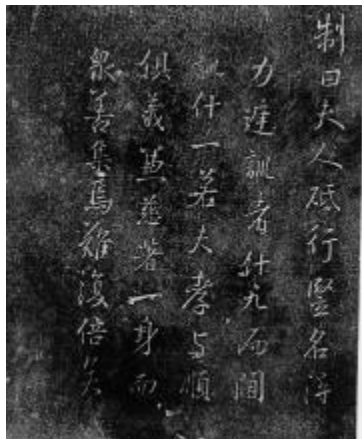 制曰夫人砥行豎名得
力逢訓者什九而間
訓什一若大孝与順
俱義與慈著一身而
衆善集焉雖復倍矣